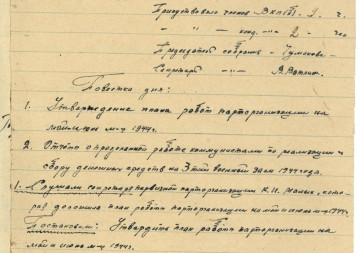 Присутствовало членов ВКП(б) - 9 ч.
- " - канд. -"- 2 - чел.
Председатель собрания - Чумакова
Секретарь -"-
Повестка дня:
1. Утверждение плана работ парторганизации на
май-июнь м-ц 1944г.
2. Отчёт о проделанной работе коммунистами по реализации и
сбору денежных средств на 3й военный заем 1944 года.
1. Слушали секретаря первичной парторганизации К.И. котор
ая доложила план работы парторганизации на май и июнь м-ц 1944г.
Постановили: Утвердить план работ парторганизации на
май и июнь м-ц 1944г.